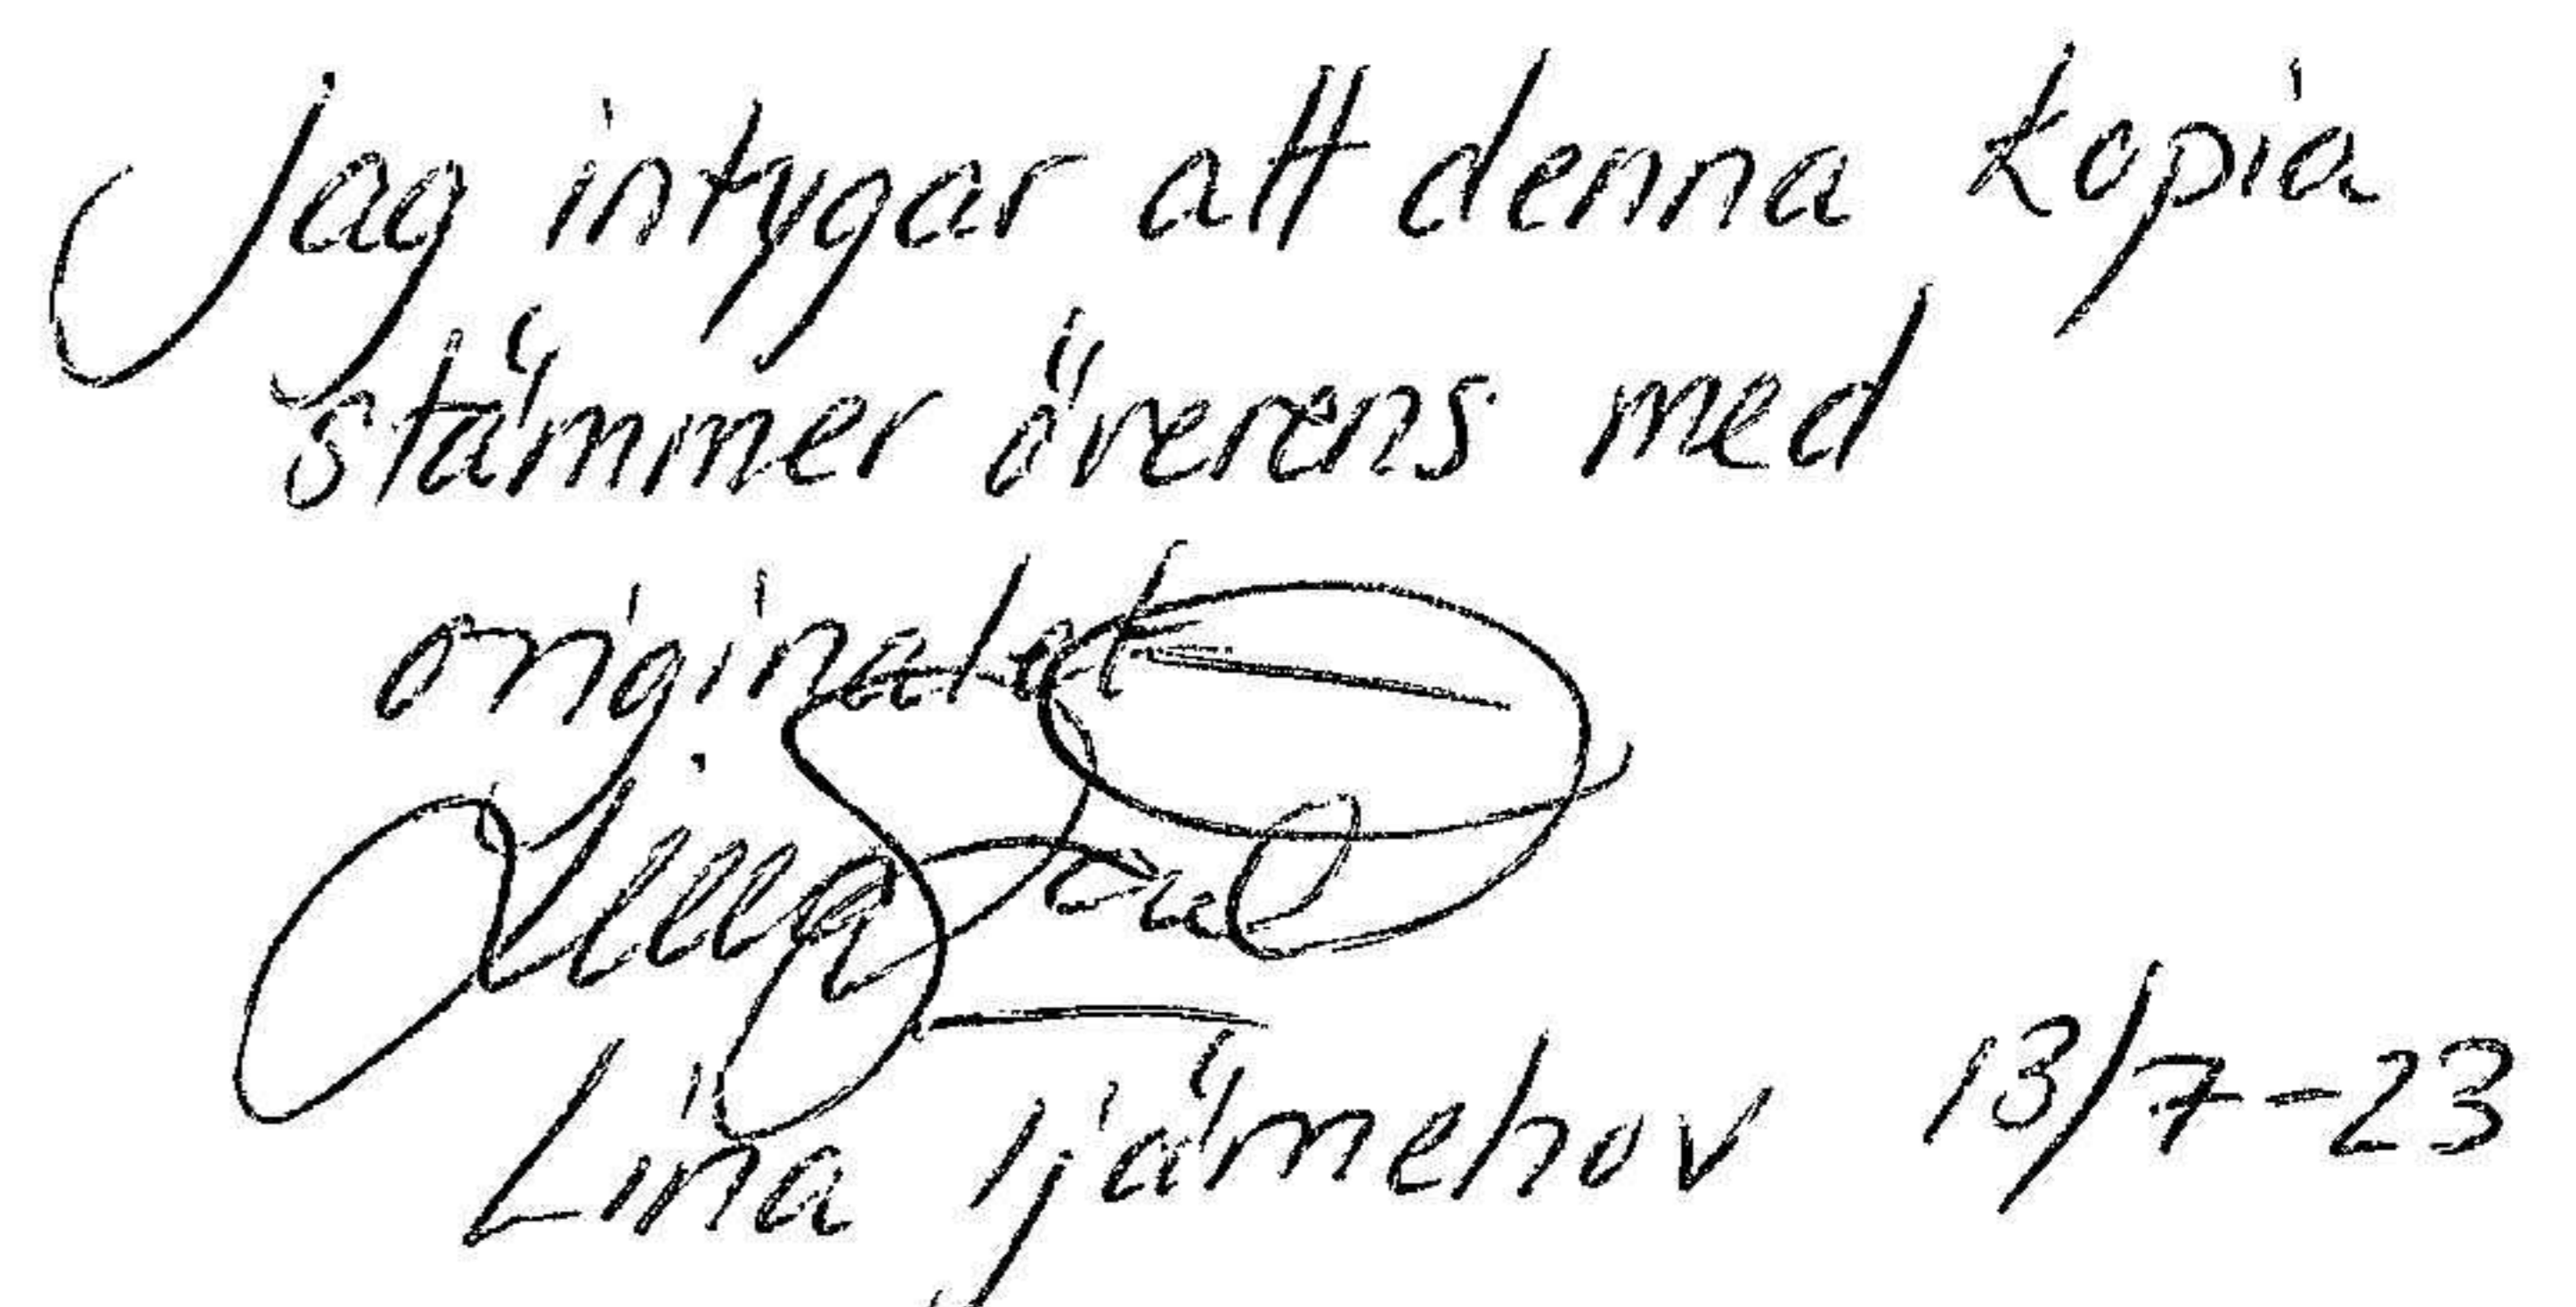 Jag intygar att denna kopia
stämmer överens med
originalet
Lina 13/7-23